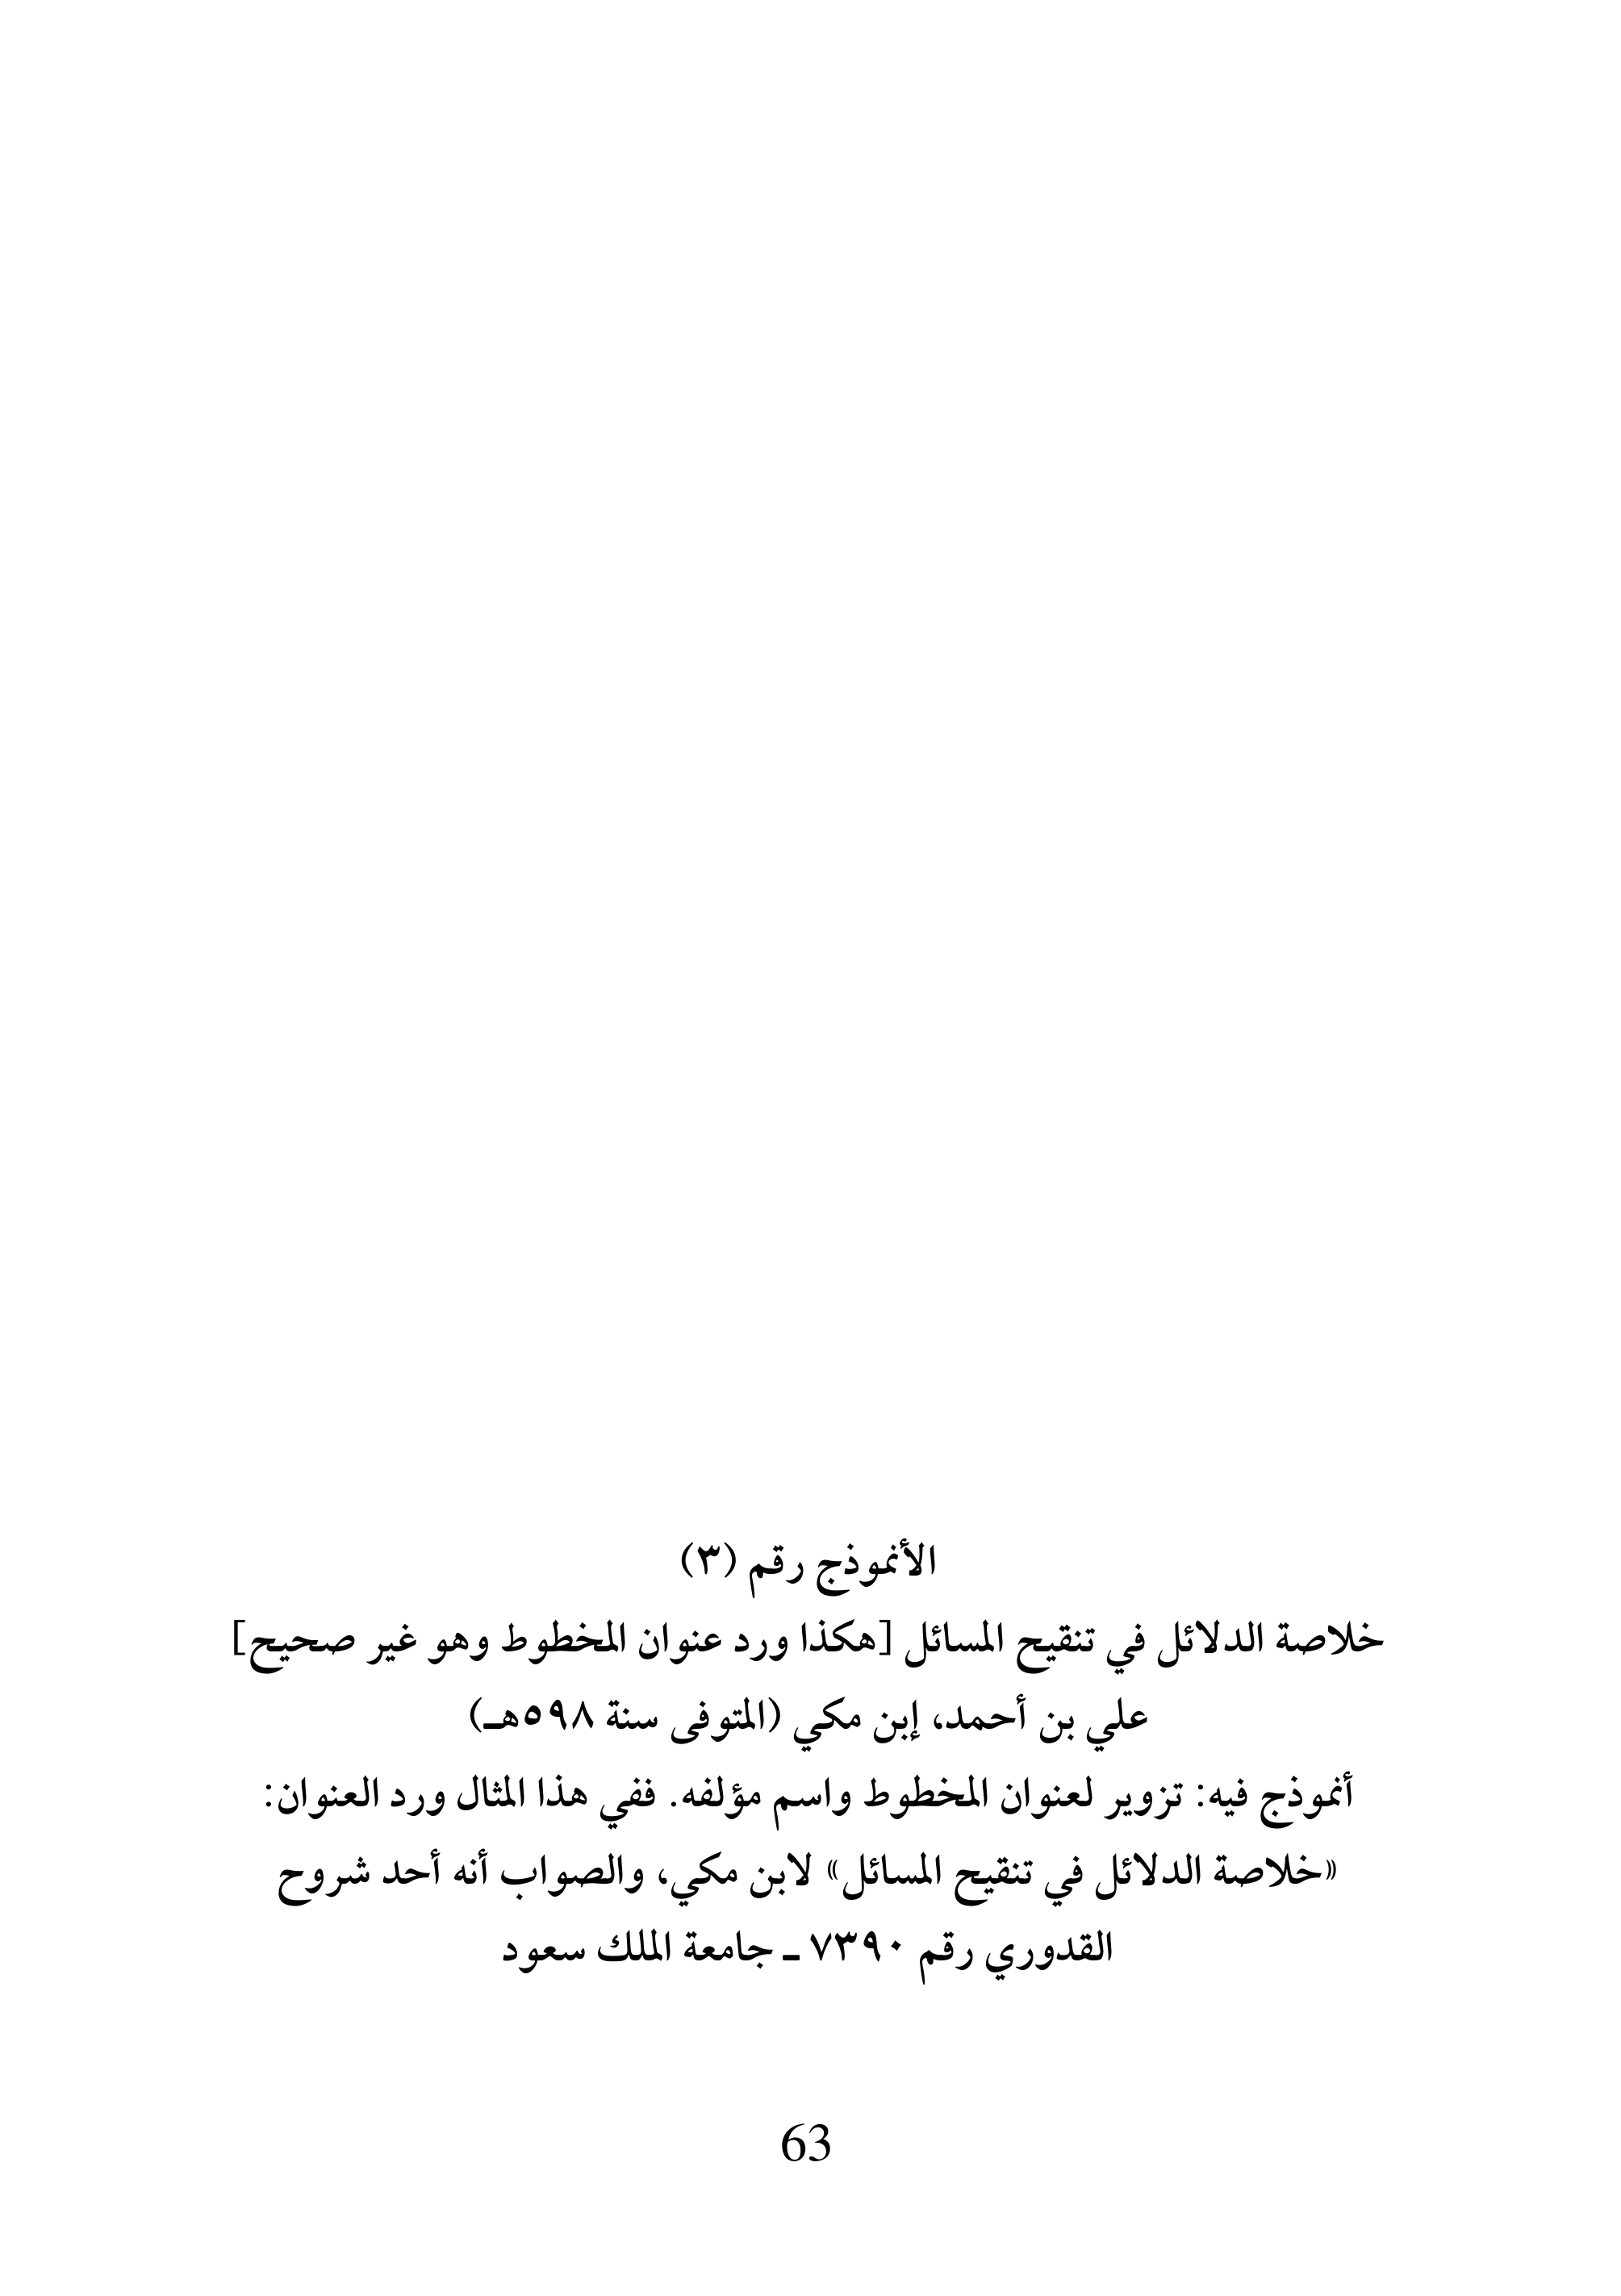 الأنموذج رقم (٣)
خلاصة الدلائل في تنقيح المسائل [هكذا ورد عنوان المخطوط وهو غير صحيح]
علي بن أحمد، إبن مكي (المتوفى سنة ٥٩٨هـ)
أنموذج فيه: تزوير لعنوان المخطوط واسم مؤلفه. ففي هذا المثال ورد العنوان:
«خلاصة الدلائل في تنقيح المسائل» لابن مكي، والصواب أنه أحد شروح
القدوري رقم ٧٣٩٠ ـ جامعة الملك سعود
63